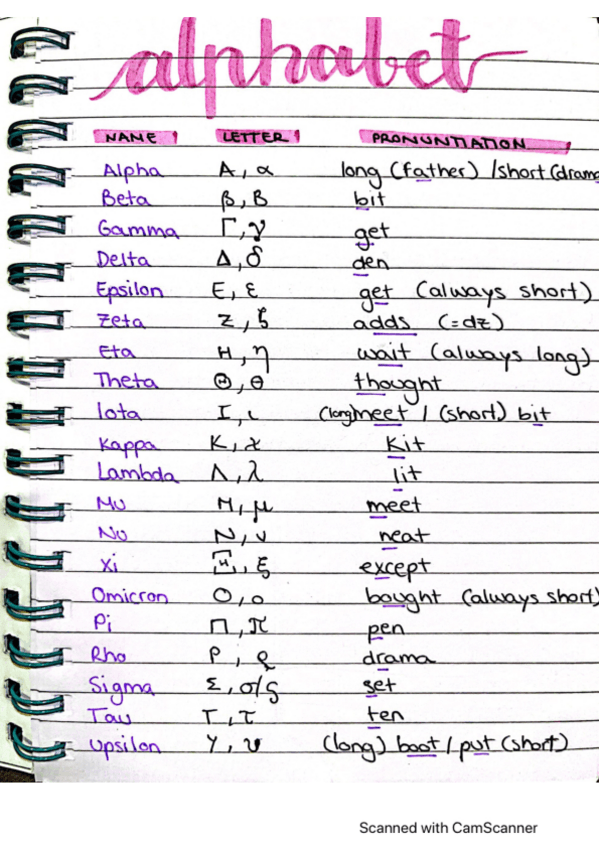 alphabet
NAME LETTER PRONUNTIATION
Alpha Α, α long (father) / short (drama
Beta β, Β bit
Gamma Γ, γ get
Delta Δ, δ den
Epsilon Ε, ε get (always short)
Zeta Ζ, ζ adds (=dz)
Eta Η, η wait (always long)
Theta Θ, θ thought
Iota Ι, ι (long) meet / (short) bit
Kappa Κ, ϰ Kit
Lambda Λ, λ lit
Mu Μ, μ meet
Nu Ν, ν neat
Xi Ξ, ξ except
Omicron Ο, ο bought (always short)
Pi Π, π pen
Rho Ρ, ρ drama
Sigma Σ, σ/ς set
Tau Τ, τ ten
Upsilon Υ, υ (long) boot / put (short)
Scanned with CamScanner